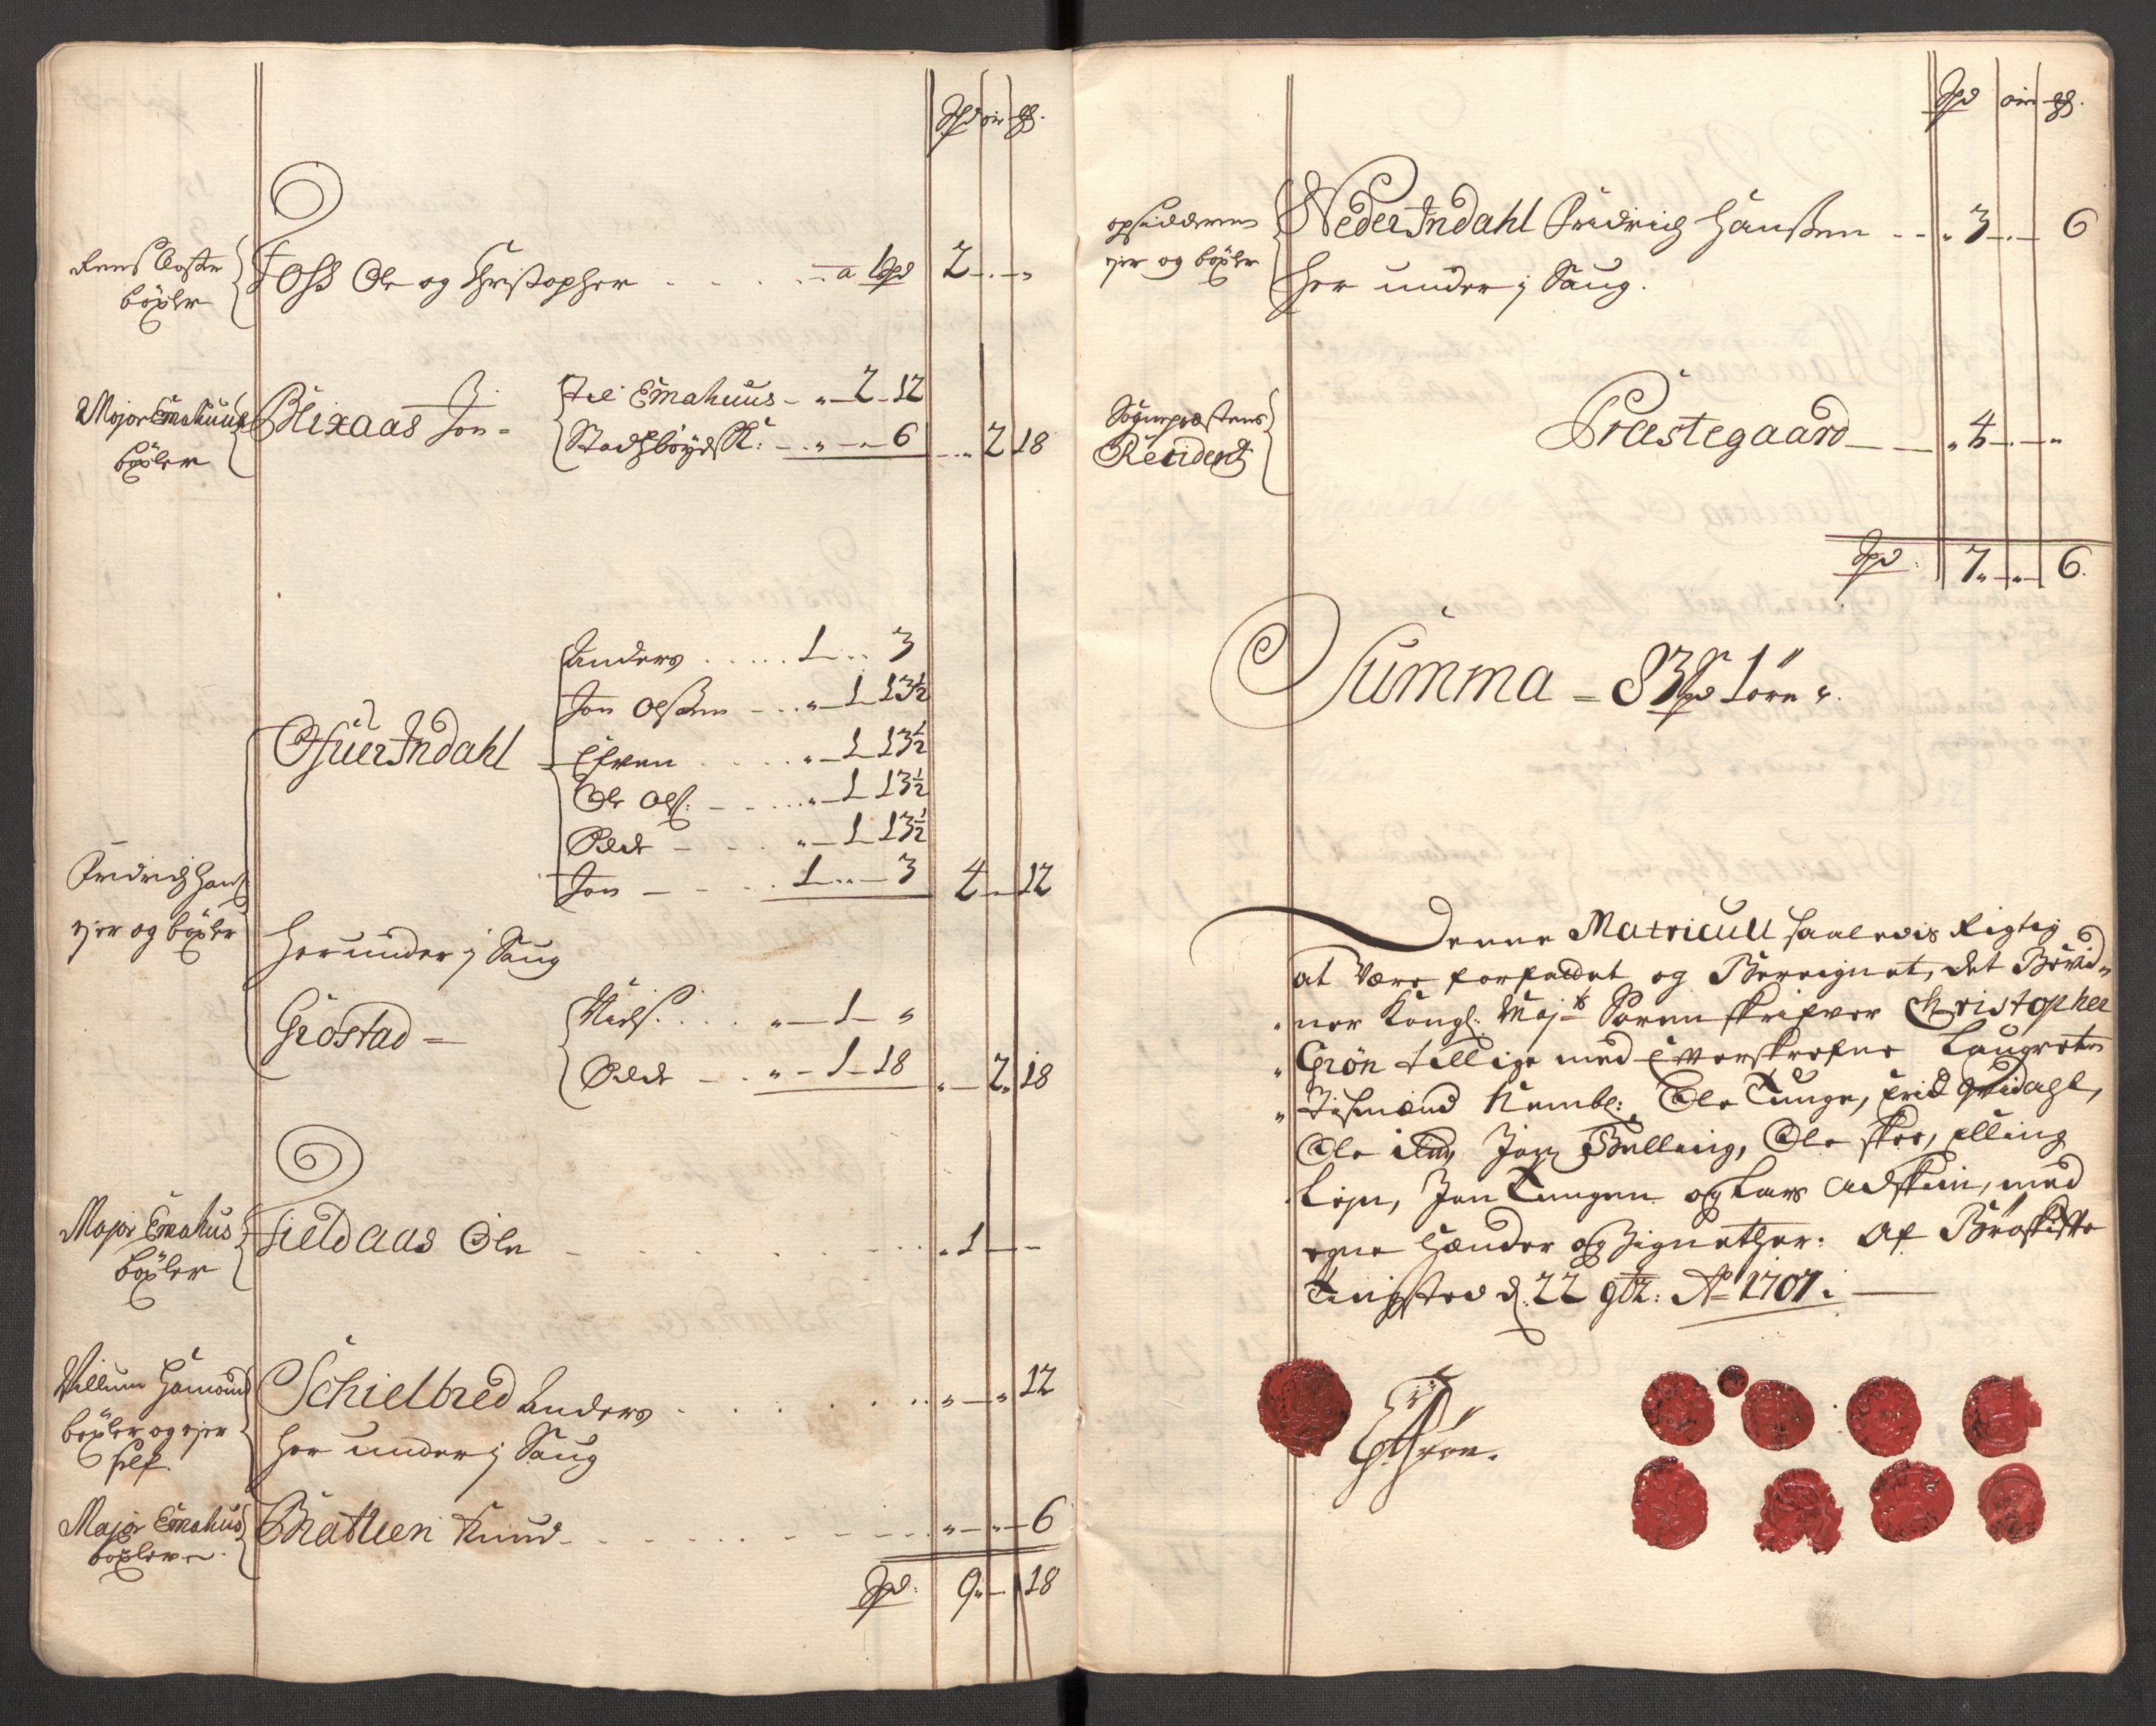 Spd øre mk.
Reens Closter bøxler
Foss Ole og Christopher - a 1 Spd 2 - . - „
Major Emahuus bøxler
Blixaas Jon -
til Emahuus - „ - 2 - 12
Stadtzbøyds K: - „ - „ - 6 - „ 2 18
Ofuer Indahl
Anders . . . . . 1 . . 3
Jon Olssen - . . „ - 1 - 13½
Efven . . . . . „ - 1 13½
Ole Ols: - . . . „ - 1 13½
Peder - . . „ - 1 13½
Jon - - - . . 1 . „ - 3 4 - 12
Fridrich Hans: ejer og bøxler
Her under j Saug
Grostad -
Niels . . . . „ - 1 - „
Peder - . . „ - 1 - 18 „ - 2 „ 18
Major Emahus bøxler
Fieldaas Ole - . . . . . „ 1 - -
Villum Hamond bøxler og ejer self.
Schielbred Anders . . . . . „ - „ 12
Her under j Saug
Major Emahus bøxler
Bratlien Knud - . . . . . „ - „ - 6
Spd: 9 „ - . 18
Spd øre mk.
opsidderen ejer og bøxler
Neder Indahl Fridrich Hanssen - - „ 3 - . - 6
Her under j Saug.
Sognepræstens Resident
Præstegaard - - „ 4 - . - „
Spd: 7 „ - „ - 6.
Summa - 83 Spd 1 øre „.
Denne Matricull saaledis Rigtig
at være forfaddet og Beregnet, det Bevid-
„ner Kongl: Maj:ts Sorenskrifver Christopher
„Grøn tillige med Efterskrefne Laugrettes
„Tismænd Nembl: Ole Tunge, Erid Qvidahl,
Ole Jon Belling, Ole skee, Elling
Lein, Jon Tungen og Lars Adskiin, med
egne Hænder og Zignether: Af Bræskifte
Tingsted d: 22 9br: Ao 1707.
CGrøn.